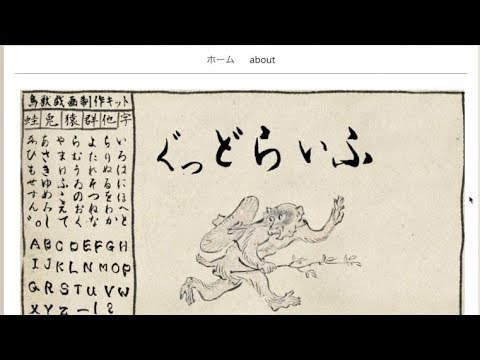 ホーム about
鳥獣戯画制作キット
蛙 兎 猿 群 他 字
いろはにほへと
ちりぬるをわか
よたれそつねな
らむうゐのおく
やまけふこえて
あさきゆめみし
ゑひもせすん
ABCDEFGH
IJKLMNOP
QRSTUVW
XYZー!?
ぐっどらいふ